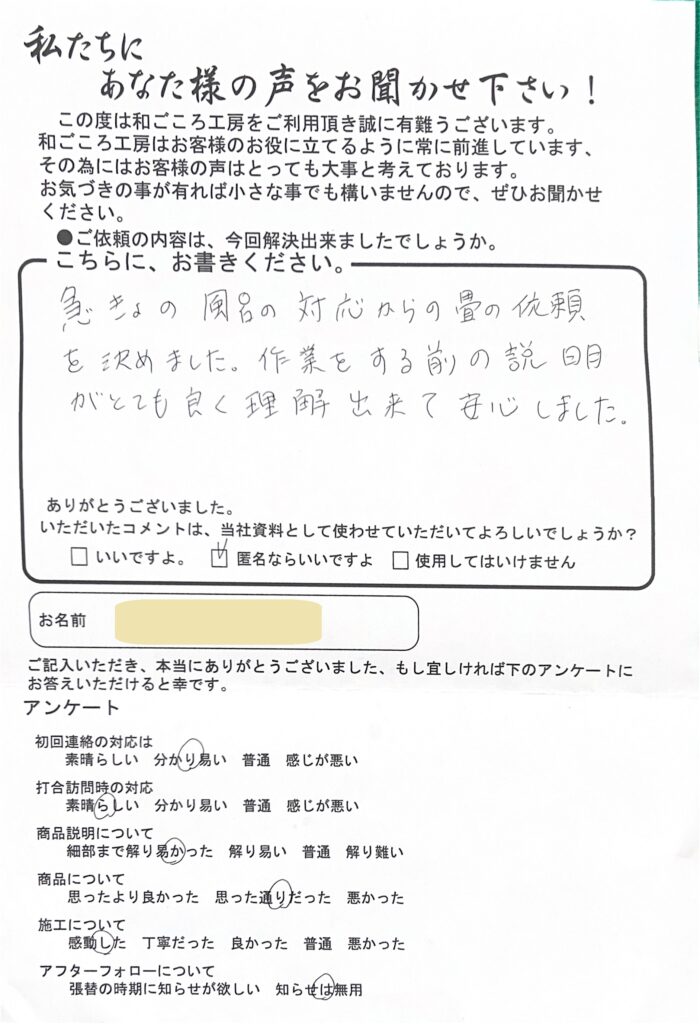 私たちに
あなた様の声をお聞かせ下さい！
この度は和ごころ工房をご利用頂き誠に有難うございます。
和ごころ工房はお客様のお役に立てるように常に前進しています、
その為にはお客様の声はとっても大事と考えております。
お気づきの事が有れば小さな事でも構いませんので、ぜひお聞かせ
ください。
●ご依頼の内容は、今回解決出来ましたでしょうか。
こちらに、お書きください。
急きょの風呂の対応からの畳の依頼
を決めました。作業をする前の説明
がとても良く理解出来て安心しました。
ありがとうございました。
いただいたコメントは、当社資料として使わせていただいてよろしいでしょうか？
□いいですよ。 ☑匿名ならいいですよ □使用してはいけません
お名前
ご記入いただき、本当にありがとうございました、もし宜しければ下のアンケートに
お答えいただけると幸です。
アンケート
初回連絡の対応は
素晴らしい 分かり易い 普通 感じが悪い
打合訪問時の対応
素晴らしい 分かり易い 普通 感じが悪い
商品説明について
細部まで解り易かった 解り易い 普通 解り難い
商品について
思ったより良かった 思った通りだった 悪かった
施工について
感動した 丁寧だった 良かった 普通 悪かった
アフターフォローについて
張替の時期に知らせが欲しい 知らせは無用